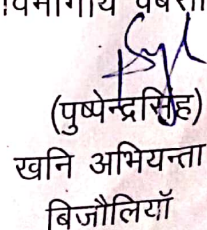 (पुष्पेन्द्रसिंह)
खनि अभियन्ता
बिजौलियॉ